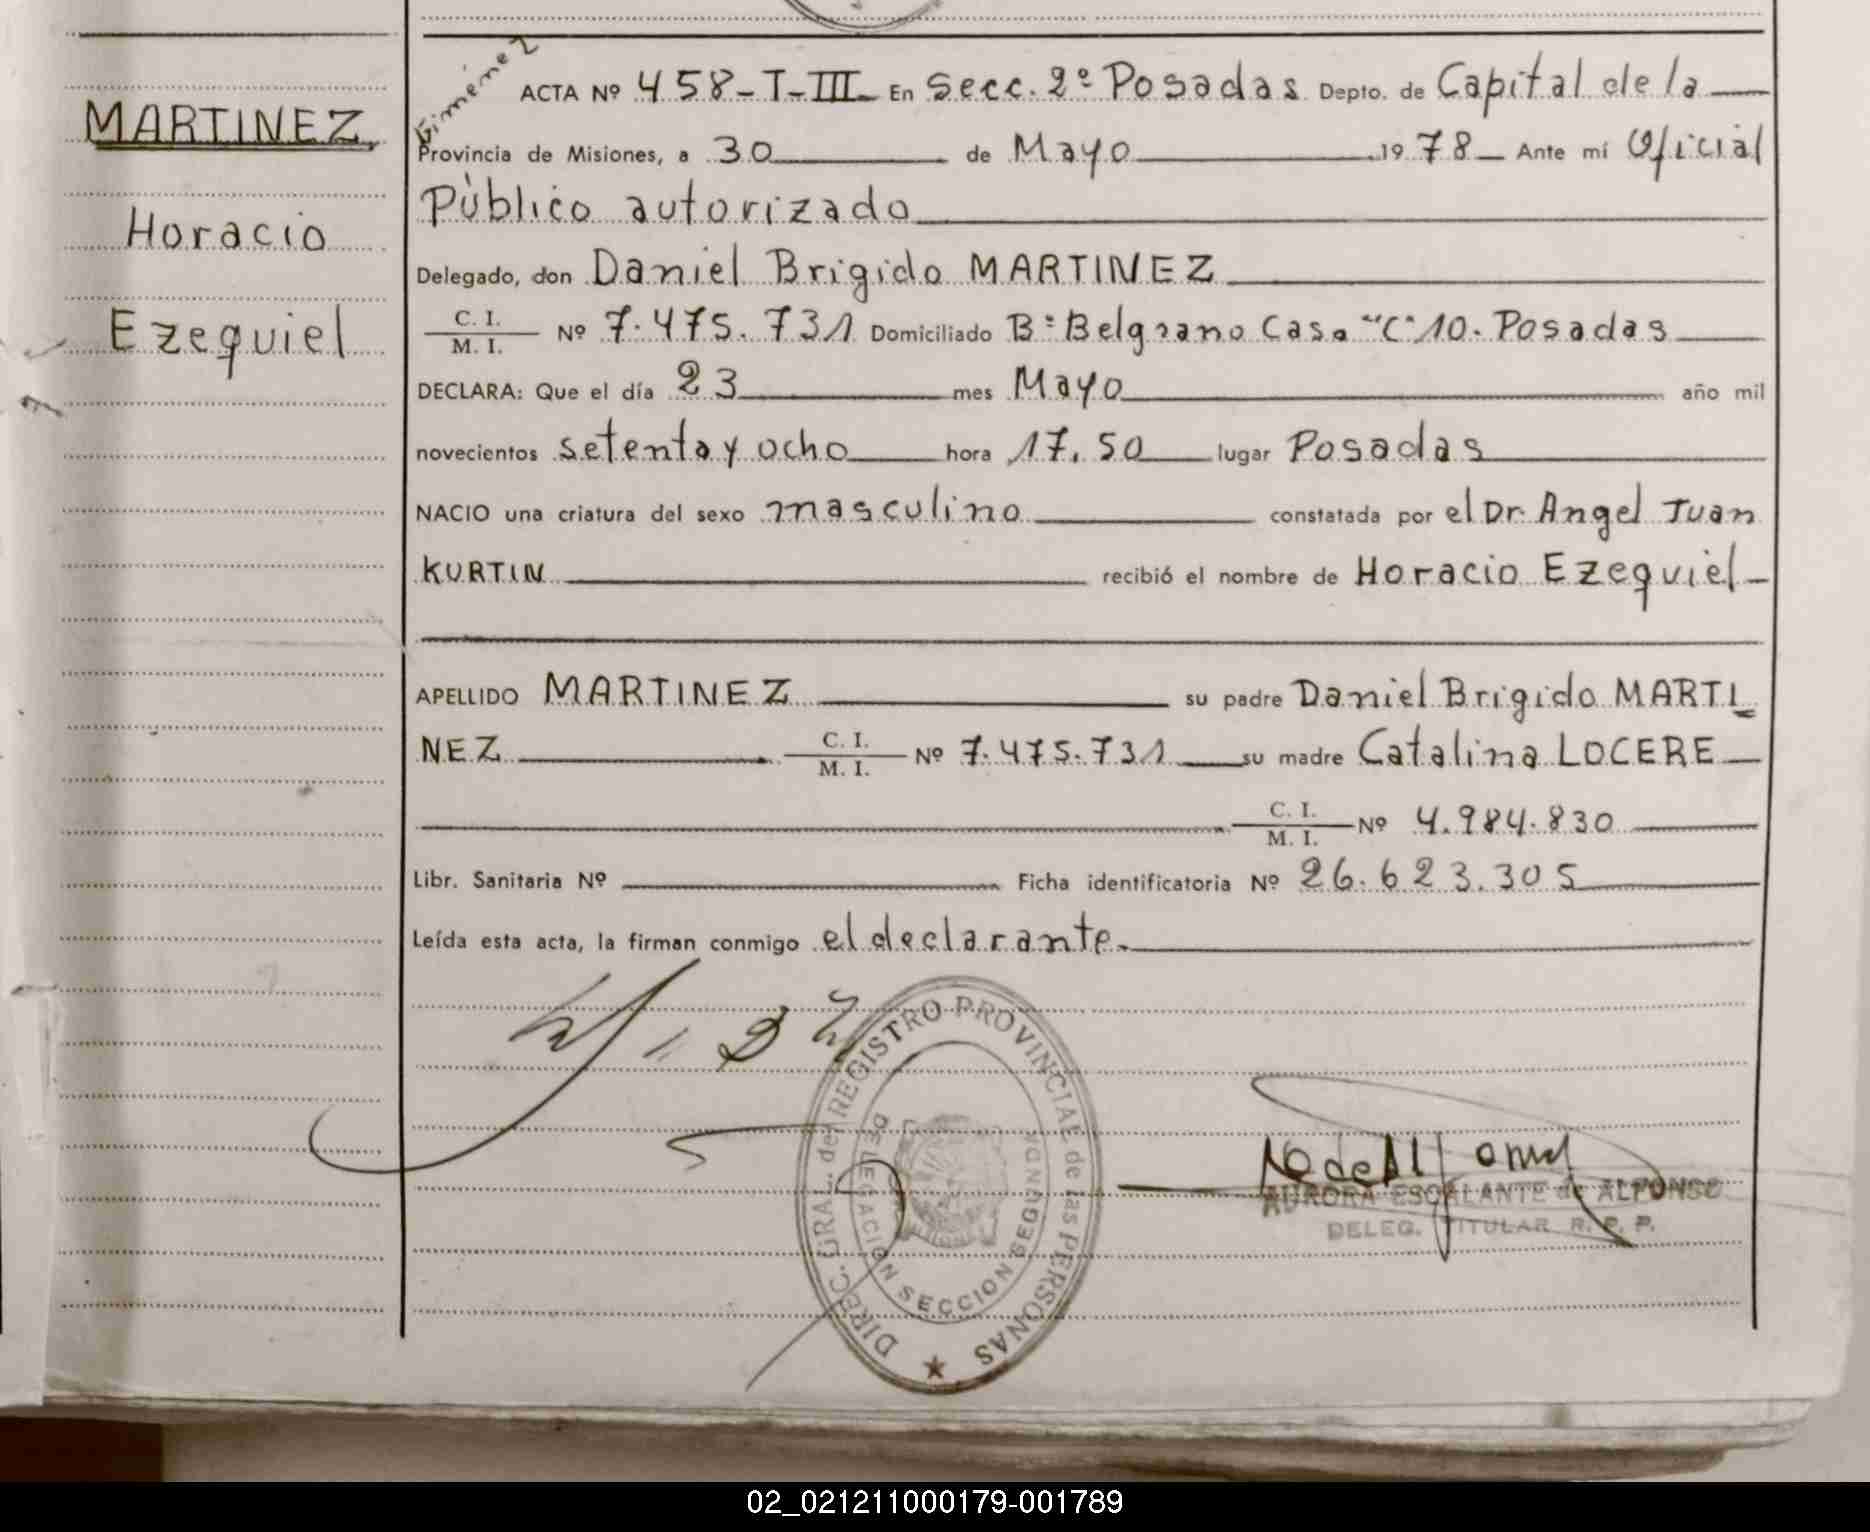 Gimenez
MARTINEZ
Horacio
Ezequiel
ACTA Nº 458-T-III- En Secc. 2º Posadas Depto. de Capital de la
Provincia de Misiones, a 30 de Mayo 1978 Ante mí Oficial
Público autorizado
Delegado, don Daniel Brigido MARTINEZ
C. I.
M. I. Nº 7.475.731 Domiciliado Bº Belgrano Casa "C" 10. Posadas
DECLARA: Que el día 23 mes Mayo año mil
novecientos setenta y ocho hora 17,50 lugar Posadas
NACIO una criatura del sexo masculino constatada por el Dr. Angel Juan
KURTIN recibió el nombre de Horacio Ezequiel
APELLIDO MARTINEZ su padre Daniel Brigido MARTI
NEZ C. I.
M. I. Nº 7.475.731 su madre Catalina LOCERE
C. I.
M. I. Nº 4.984.830
Libr. Sanitaria Nº Ficha identificatoria Nº 26.623.305
Leída esta acta, la firman conmigo el declarante.
DIREC. GRAL. del REGISTRO PROVINCIAL de las PERSONAS
DELEGACION SECCION SEGUNDA
AURORA ESCALANTE de ALFONSO
DELEG. TITULAR R. P. P.
02_021211000179-001789